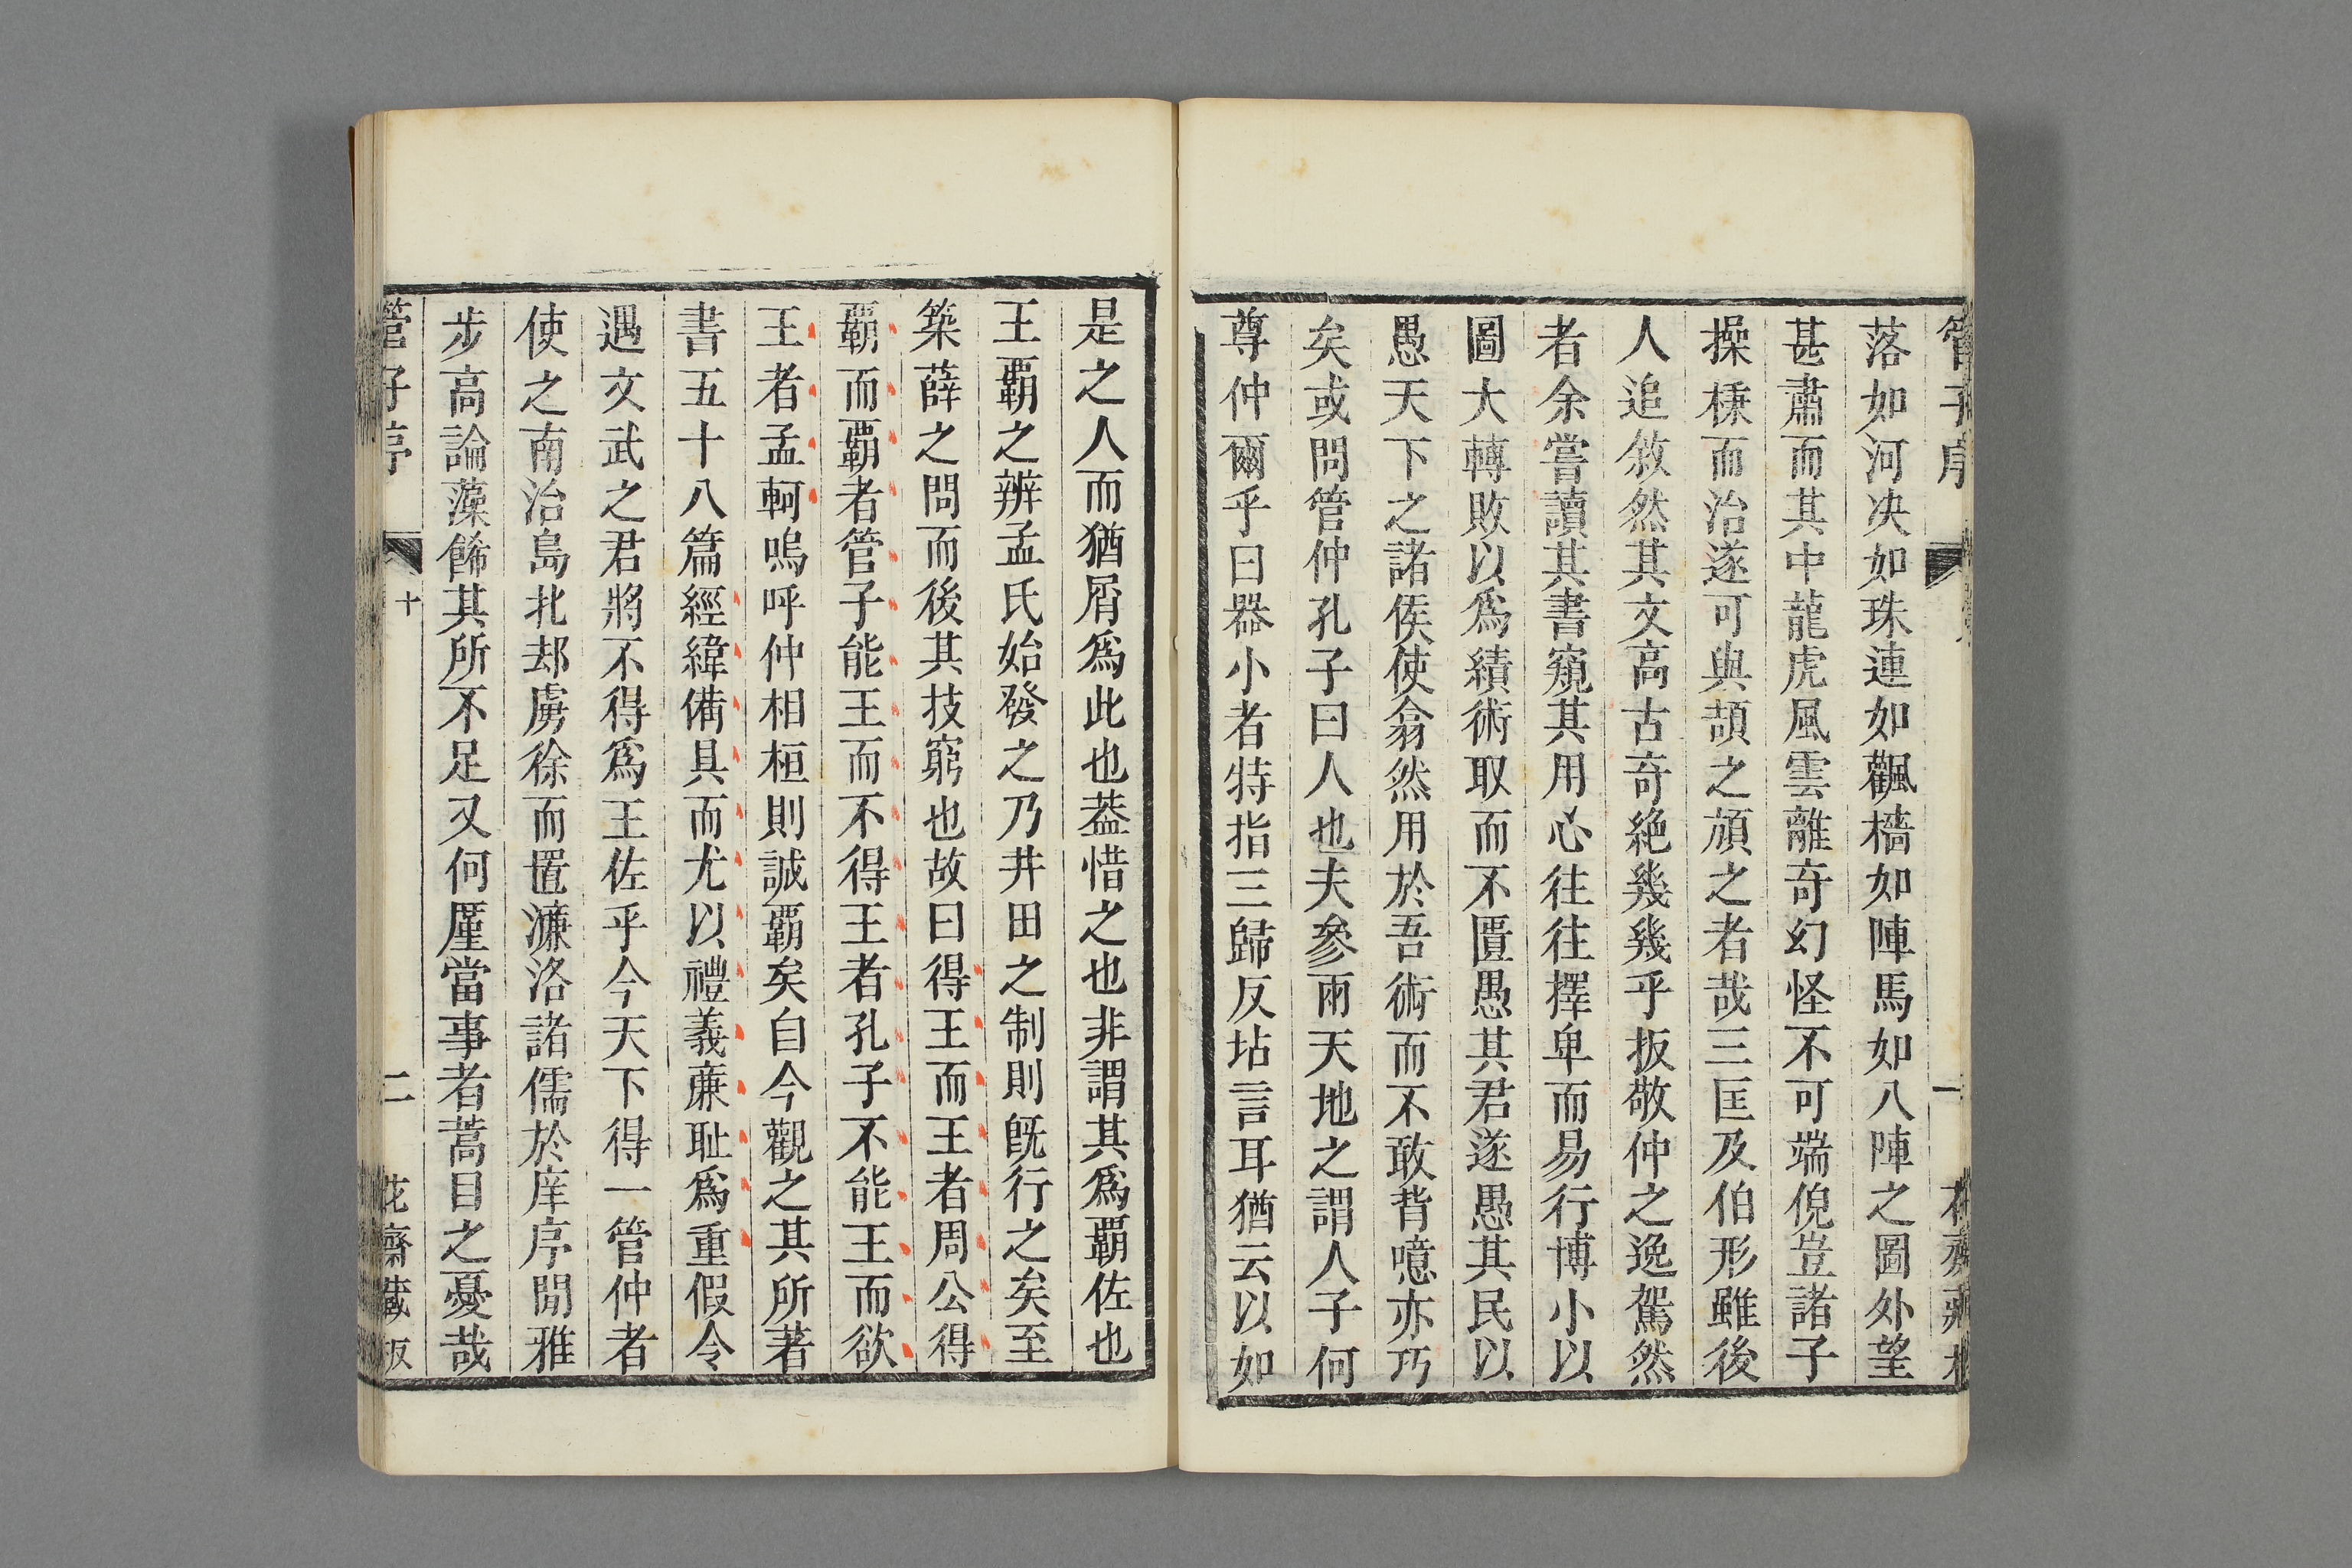 管子序 一 花齋藏板
落如河决如珠連如颿檣如陣馬如八陣之圖外望
甚肅而其中龍虎風雲離奇幻怪不可端倪豈諸子
操槧而治遂可與頡之頏之者哉三匡及伯形雖後
人追敘然其文高古奇絶幾幾乎扳敬仲之逸駕然
者余嘗讀其書窺其用心往往擇卑而易行博小以
圖大轉敗以爲績術取而不匱愚其君遂愚其民以
愚天下之諸侯使翕然用於吾術而不敢背噫亦巧
矣或問管仲孔子曰人也夫參兩天地之謂人子何
尊仲爾乎曰器小者特指三歸反坫言耳猶云以如
是之人而猶屑爲此也葢惜之也非謂其爲覇佐也
王覇之辨孟氏始發之乃井田之制則旣行之矣至
築薛之問而後其技窮也故曰得王而王者周公得
覇而覇者管子能王而不得王者孔子不能王而欲
王者孟軻嗚呼仲相桓則誠覇矣自今觀之其所著
書五十八篇經緯備具而尤以禮義亷耻爲重假令
遇文武之君將不得爲王佐乎今天下得一管仲者
使之南治島北却虜徐而置濂洛諸儒於庠序閒雅
步高論藻餙其所不足又何厪當事者蒿目之憂哉
管子序 十 二 花齋藏板